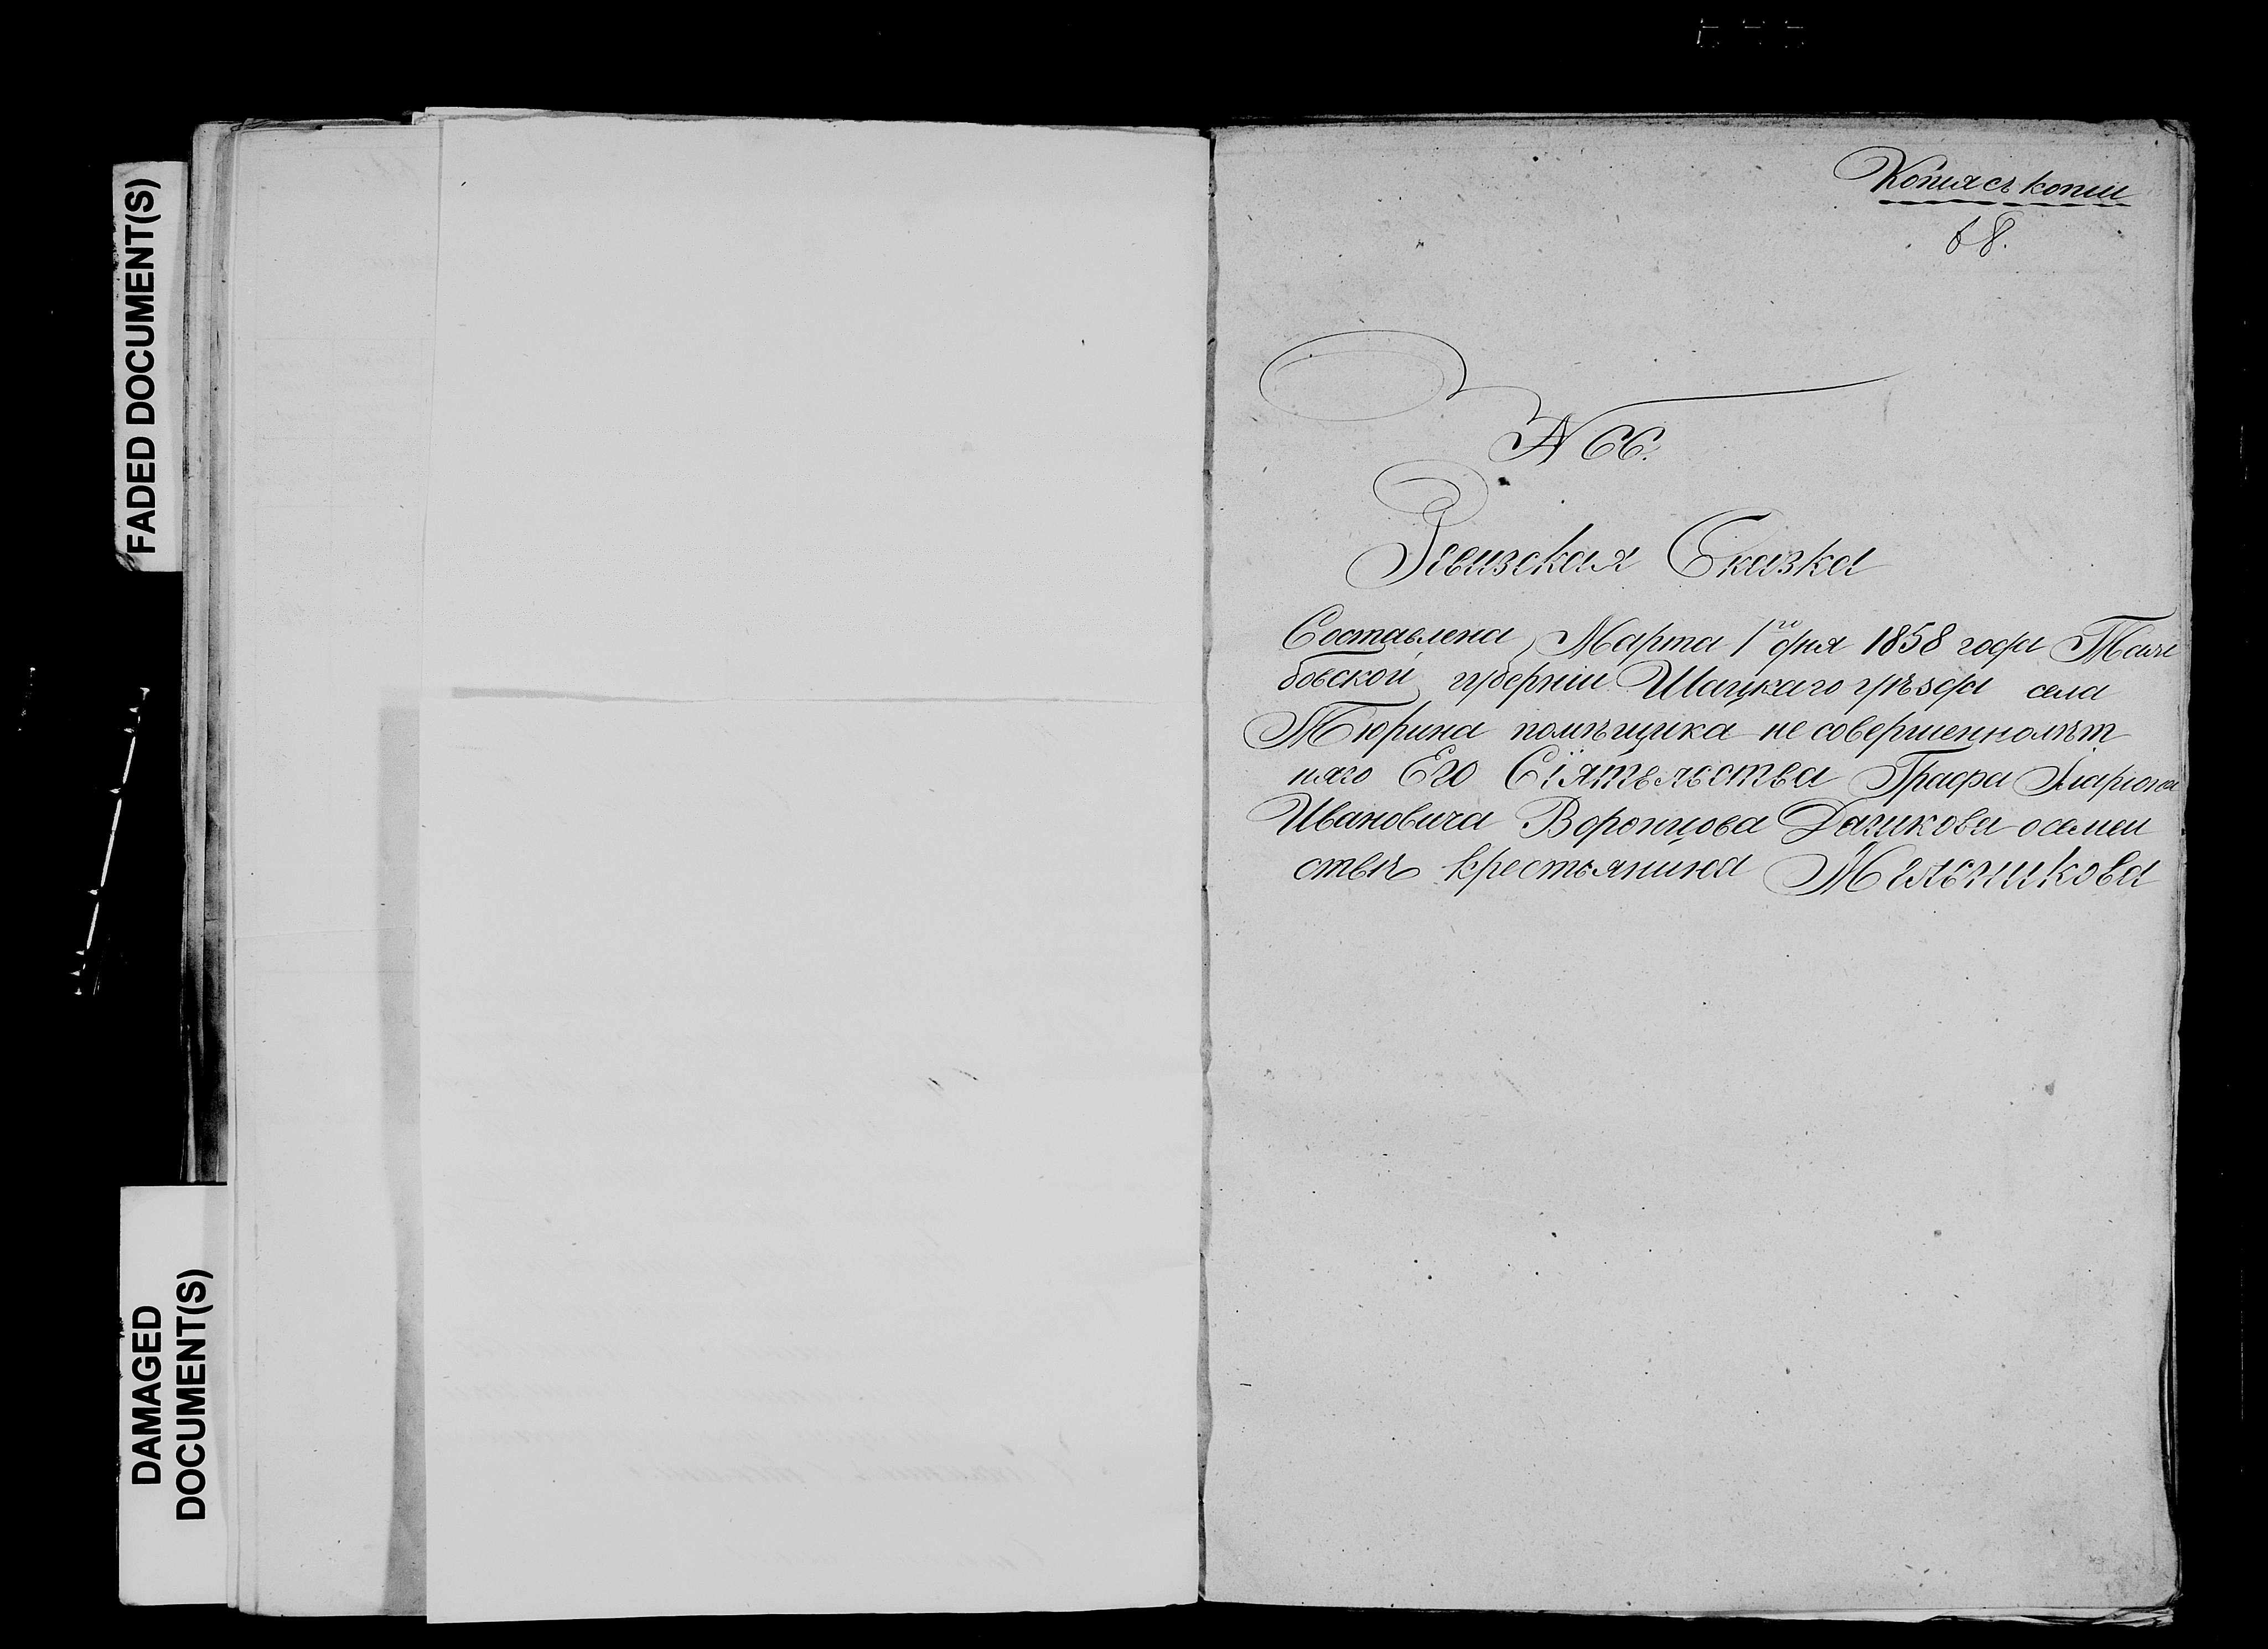 FADED DOCUMENT(S)
DAMAGED
DOCUMENT(S)
Копия съ копии
68.
№ 66.
Ревизская Сказка
Составлена Марта 1го дня 1858 года Там
бовской губернiи Шацкаго уѣзда села
Тюрина помѣщика не совершеннолѣт
няго Его Сiятельства Графа Иларiона
Ивановича Воронцова Дашкова о семей
ствѣ крестьянина Мельникова